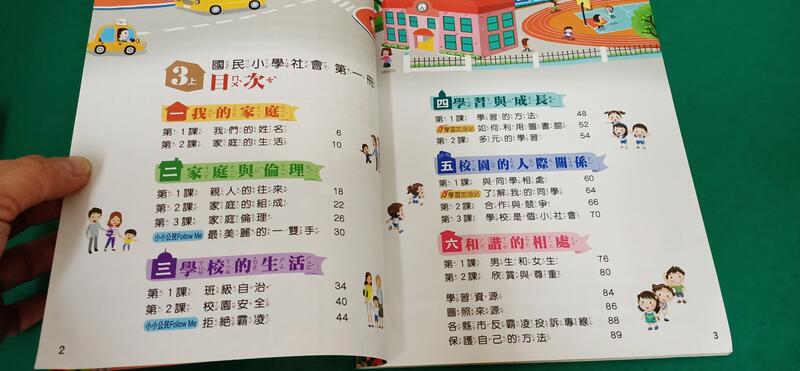 國民小學社會 第一冊
3上 目次
一 我的家庭
第1課 我們的姓名 6
第2課 家庭的生活 10
二 家庭與倫理
第1課 親人的往來 18
第2課 家庭的組成 22
第3課 家庭倫理 26
小小公民Follow Me 最美麗的一雙手 30
三 學校的生活
第1課 班級自治 34
第2課 校園安全 40
小小公民Follow Me 拒絕霸凌 44
2
四 學習與成長
第1課 學習的方法 48
學習加油站 如何利用圖書館 52
第2課 多元的學習 54
五 校園的人際關係
第1課 與同學相處 60
學習加油站 了解我的同學 64
第2課 合作與競爭 66
第3課 學校是個小社會 70
六 和諧的相處
第1課 男生和女生 76
第2課 欣賞與尊重 80
學習資源 84
圖照來源 86
各縣市反霸凌投訴專線 88
保護自己的方法 89
3